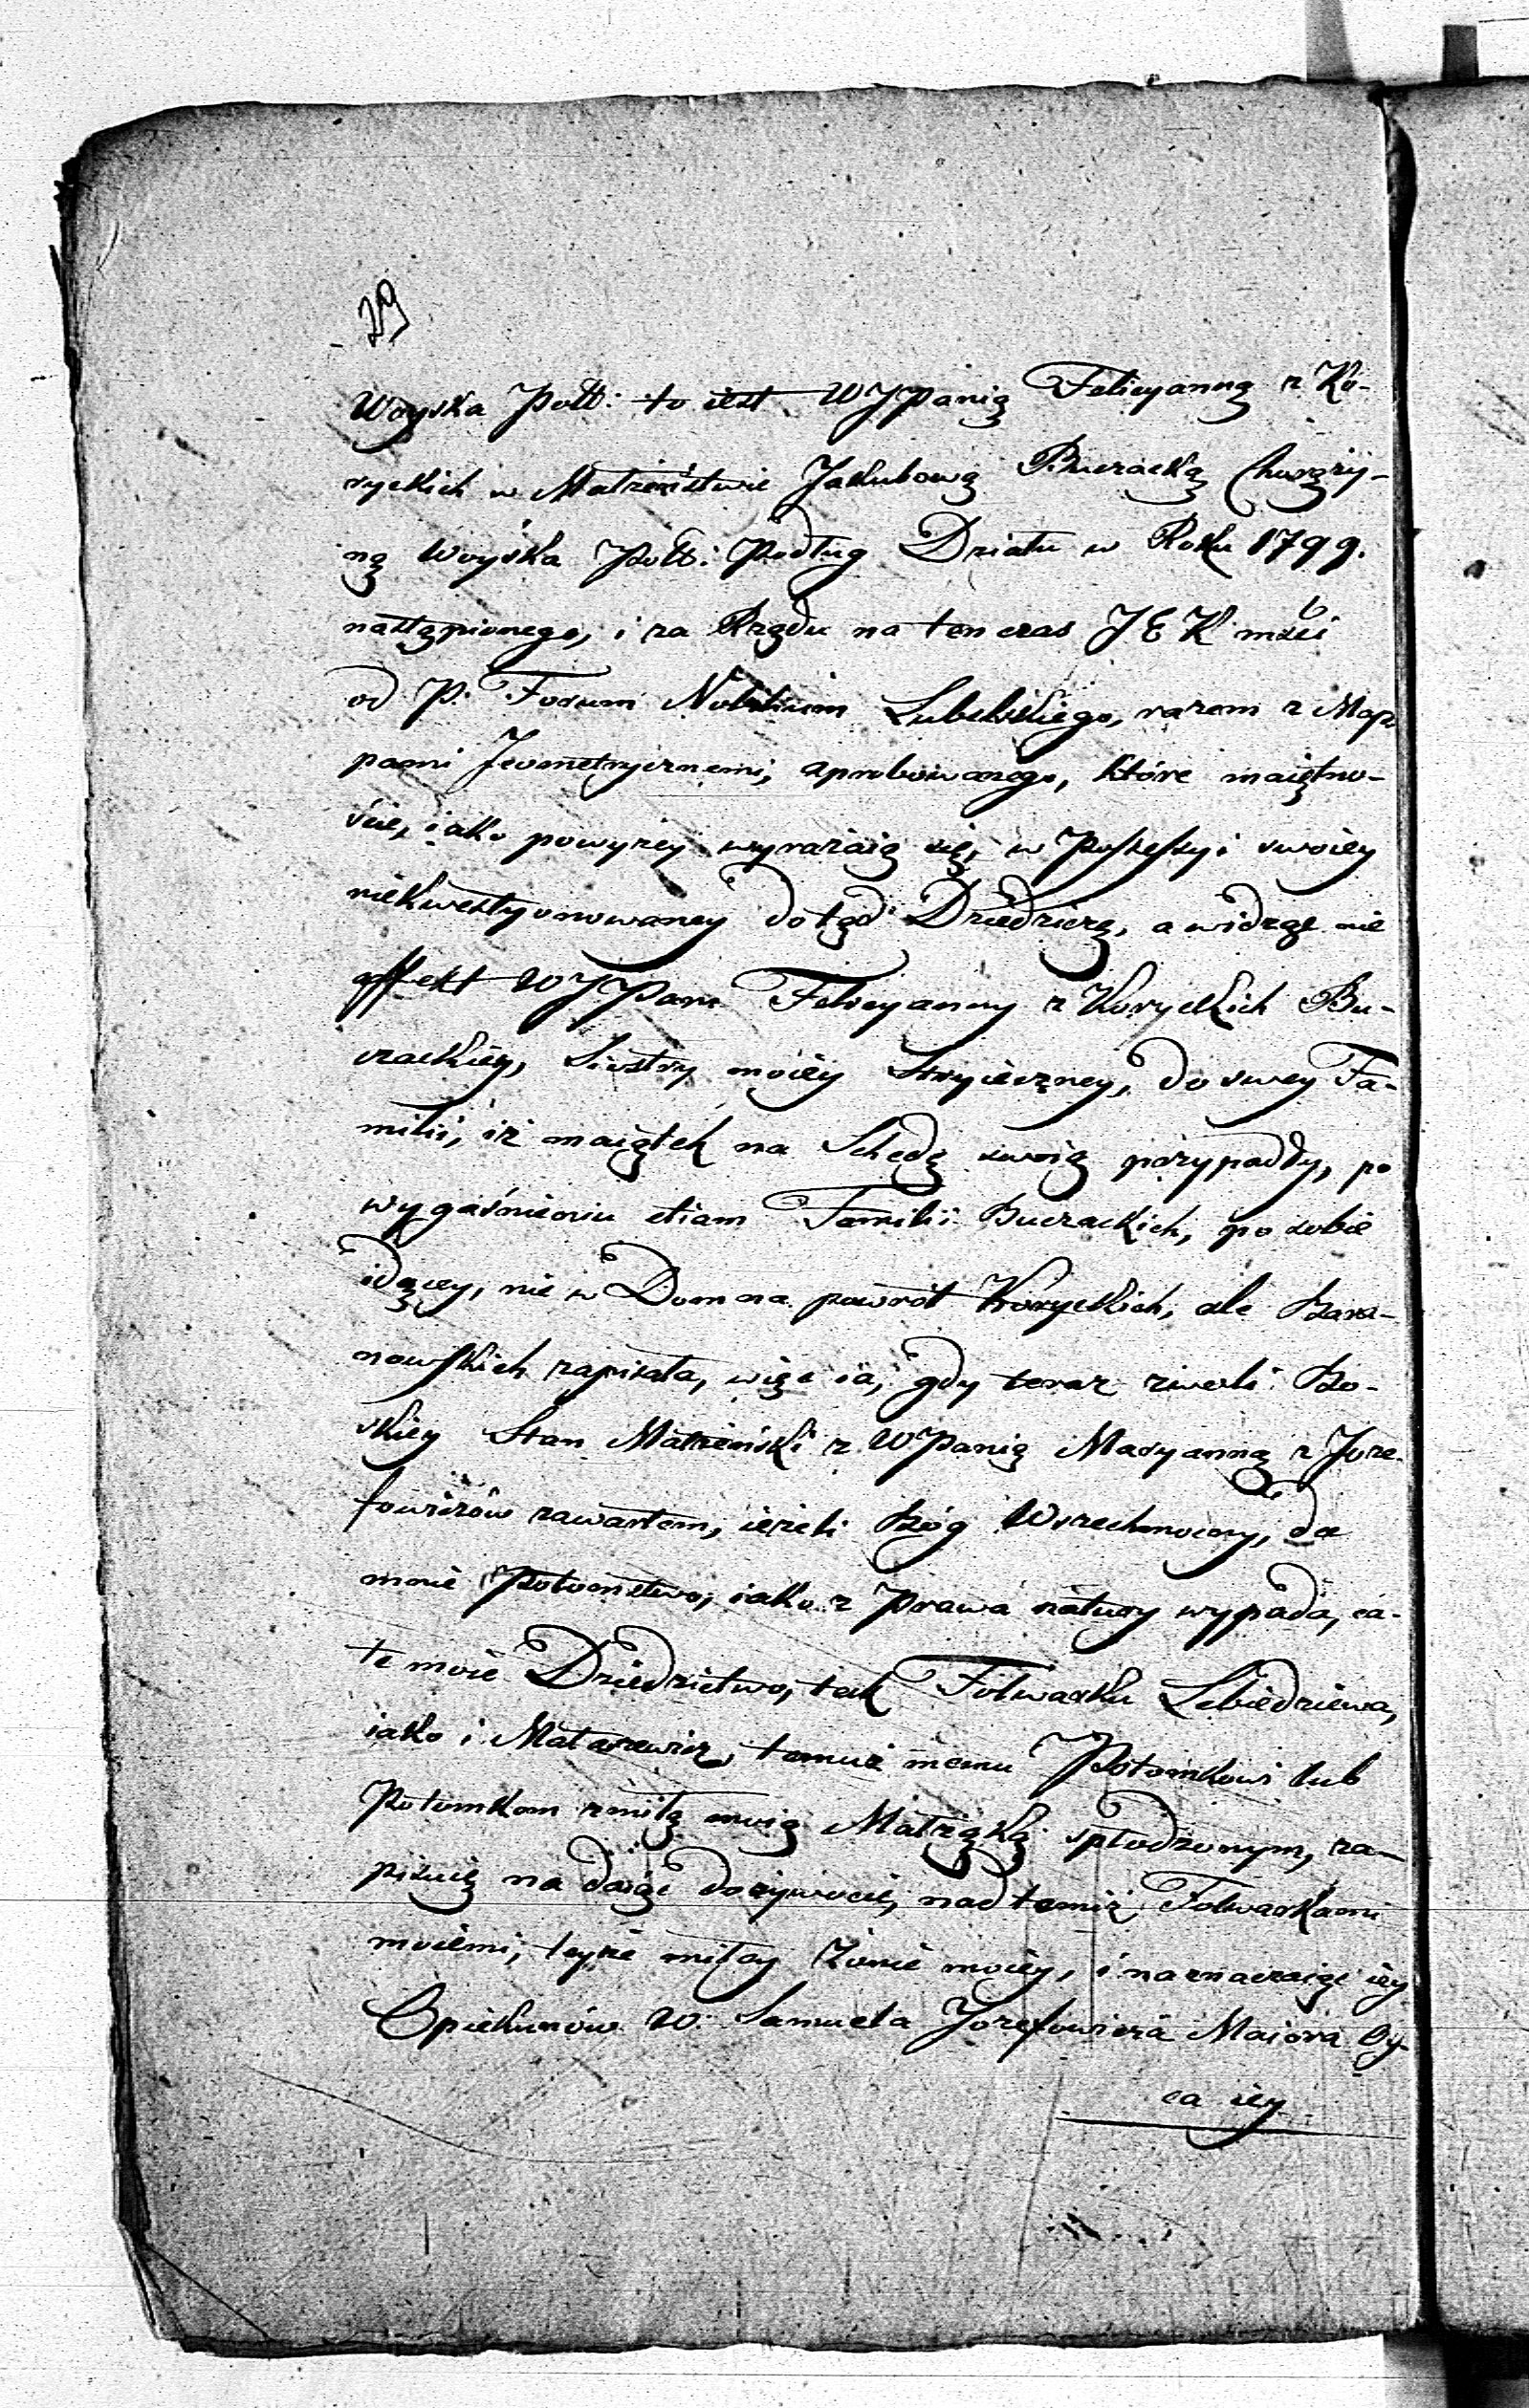 29
Woyska Poll: to iest WJPanią Felicyanną z Ko-
ryckich w Małżeństwie Jakubową Buczacką Chorąży-
ną Woyska Poll: Podług Działu w Roku 1799.
nastąpionego, i za Rządu na ten czas J E K mści
od P. Forum Nobilium Lubelskiego, razem z Map-
pami Jeometrycznemi, aprobowanego, które maiętno-
ście, iako powyżey wyrażaią się, w Possessyi swoiey
niekwestyonowaney dotąd Dziedziczę, a widząc nie
affekt WJPani Felicyanny z Koryckich Bu-
czackiey, Siostry moiey Stryieczney, do swey Fa-
milii, iż maiątek na Schedę swoią przypadły, po
wygaśnieniu etiam Familii Buczackich, po sobie
idącey, nie w Dom na powrót Koryckich, ale Bara-
nowskich zapisała, więc ia, gdy teraz z woli Bo-
skiey Stan Małżeński z WPanią Maryanną z Joze-
fowiczów zawarłem, ieżeli Bóg Wszechmocny, da
mnie Potomstwo, iako z Prawa natury wypada, ca-
łe moie Dziedzictwo, tak Folwarku Lebiedziewa,
iako i Małaszewicz, temuż memu Potomkowi lub
Potomkom z miłą moią Małżąką spłodzonym, za-
pisuię na daiąc dożywocie, nad temiż Folwarkami
moiemi, teyże miłey Żonie moiey, i naznaczaiąc iey
Opiekunów W. Samuela Jozefowicza Maiora Oy-
ca iey